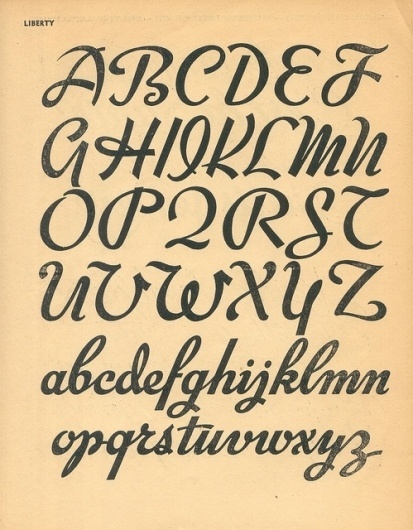 LIBERTY
ABCDEF
GHIJKLMN
OPQRST
UVWXYZ
abcdefghijklmn
opqrstuvwxyz